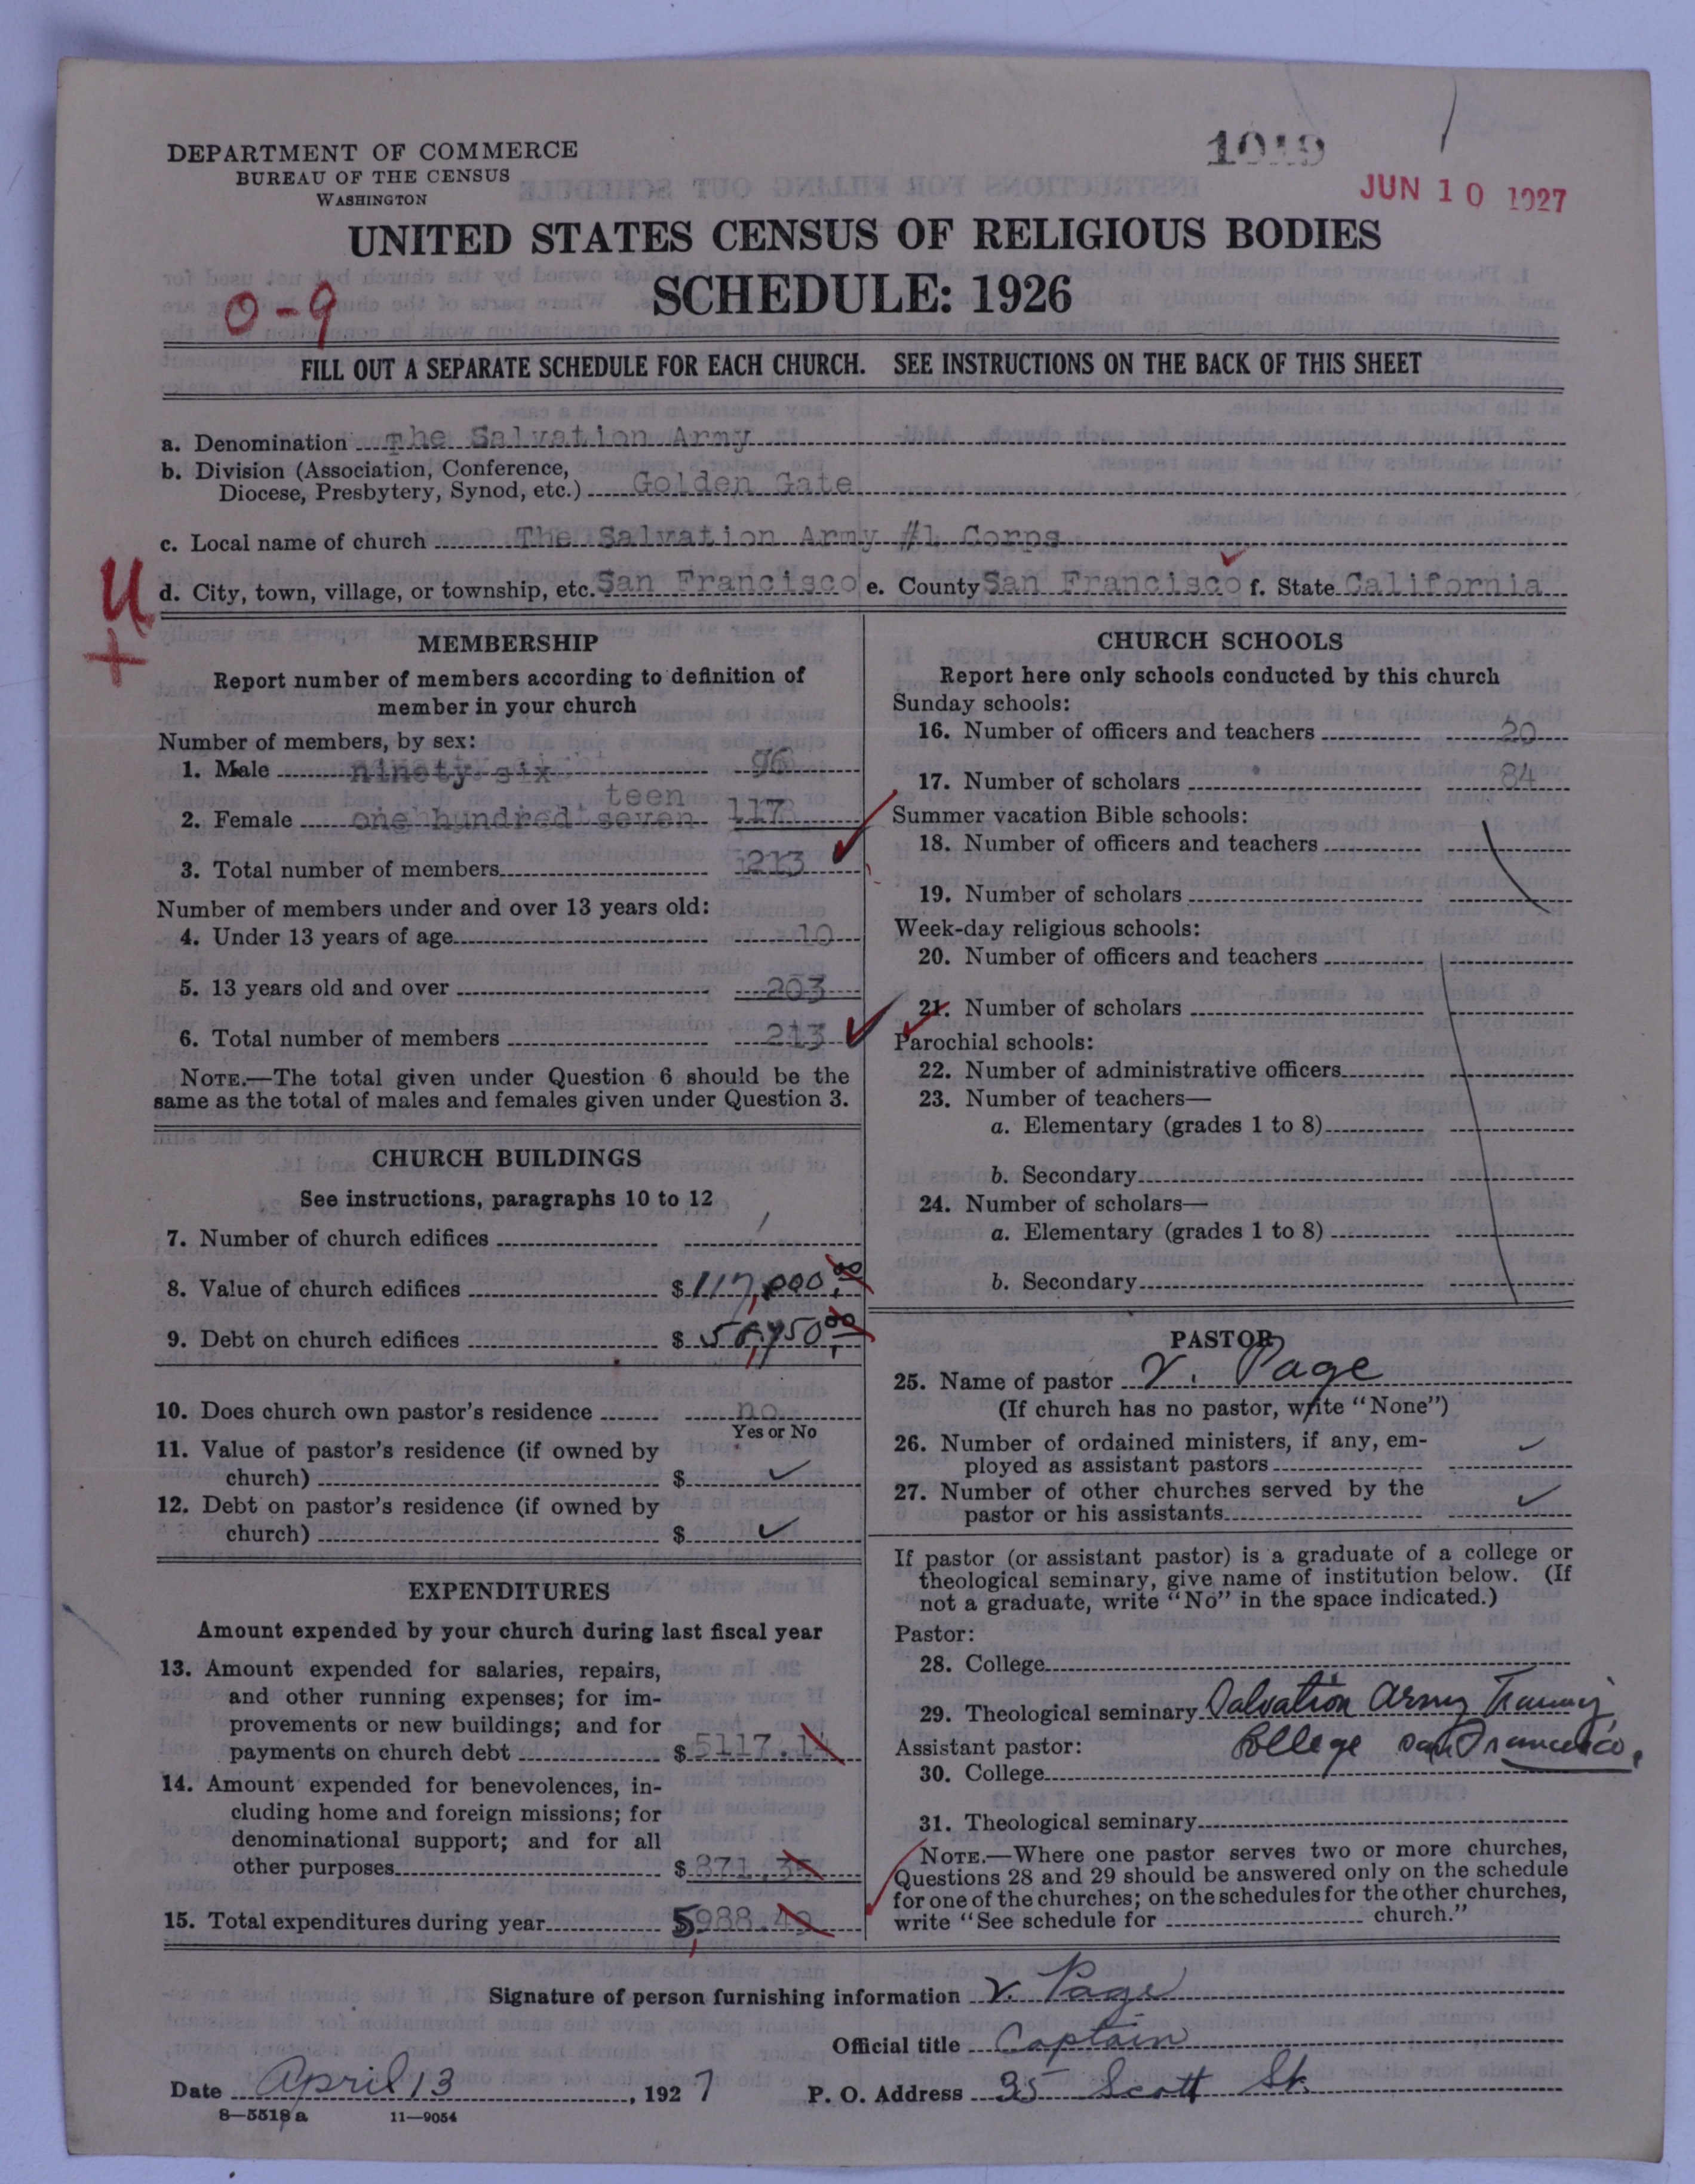 DEPARTMENT OF COMMERCE
BUREAU OF THE CENSUS
WASHINGTON
JUN 10 1927
UNITED STATES CENSUS OF RELIGIOUS BODIES
SCHEDULE: 1926
0-9
FILL OUT A SEPARATE SCHEDULE FOR EACH CHURCH. SEE INSTRUCTIONS ON THE BACK OF THIS SHEET
a. Denomination The Salvation Army
b. Division (Association, Conference,
Diocese, Presbytery, Synod, etc.) Golden Gate
c. Local name of church The Salvation Army #1 Corps
d. City, town, village, or township, etc. San Francisco e. County San Francisco f. State California
U
+
MEMBERSHIP
Report number of members according to definition of
member in your church
Number of members, by sex:
1. Male ninety six 96
teen
2. Female one hundred seven 117
3. Total number of members 213
Number of members under and over 13 years old:
4. Under 13 years of age 10
5. 13 years old and over 203
6. Total number of members 213
NOTE.—The total given under Question 6 should be the
same as the total of males and females given under Question 3.
CHURCH BUILDINGS
See instructions, paragraphs 10 to 12
7. Number of church edifices 1
8. Value of church edifices $117,000.00
9. Debt on church edifices $
10. Does church own pastor's residence no
Yes or No
11. Value of pastor's residence (if owned by
church) $ ✓
12. Debt on pastor's residence (if owned by
church) $ ✓
EXPENDITURES
Amount expended by your church during last fiscal year
13. Amount expended for salaries, repairs,
and other running expenses; for im-
provements or new buildings; and for
payments on church debt $5117.14
14. Amount expended for benevolences, in-
cluding home and foreign missions; for
denominational support; and for all
other purposes $871.35
15. Total expenditures during year 5,988.49
CHURCH SCHOOLS
Report here only schools conducted by this church
Sunday schools:
16. Number of officers and teachers 20
17. Number of scholars 84
Summer vacation Bible schools:
18. Number of officers and teachers
19. Number of scholars
Week-day religious schools:
20. Number of officers and teachers
21. Number of scholars
Parochial schools:
22. Number of administrative officers
23. Number of teachers—
a. Elementary (grades 1 to 8)
b. Secondary
24. Number of scholars—
a. Elementary (grades 1 to 8)
b. Secondary
PASTOR
25. Name of pastor V. Page
(If church has no pastor, write "None")
26. Number of ordained ministers, if any, em-
ployed as assistant pastors ✓
27. Number of other churches served by the
pastor or his assistants ✓
If pastor (or assistant pastor) is a graduate of a college or
theological seminary, give name of institution below. (If
not a graduate, write "No" in the space indicated.)
Pastor:
28. College
29. Theological seminary Salvation Army Training
College San Francisco.
Assistant pastor:
30. College
31. Theological seminary
NOTE.—Where one pastor serves two or more churches,
Questions 28 and 29 should be answered only on the schedule
for one of the churches; on the schedules for the other churches,
write "See schedule for church."
Signature of person furnishing information V. Page
Official title Captain
Date April 13, 1927 P. O. Address 35 Scott St.
8—5518 a 11—9054